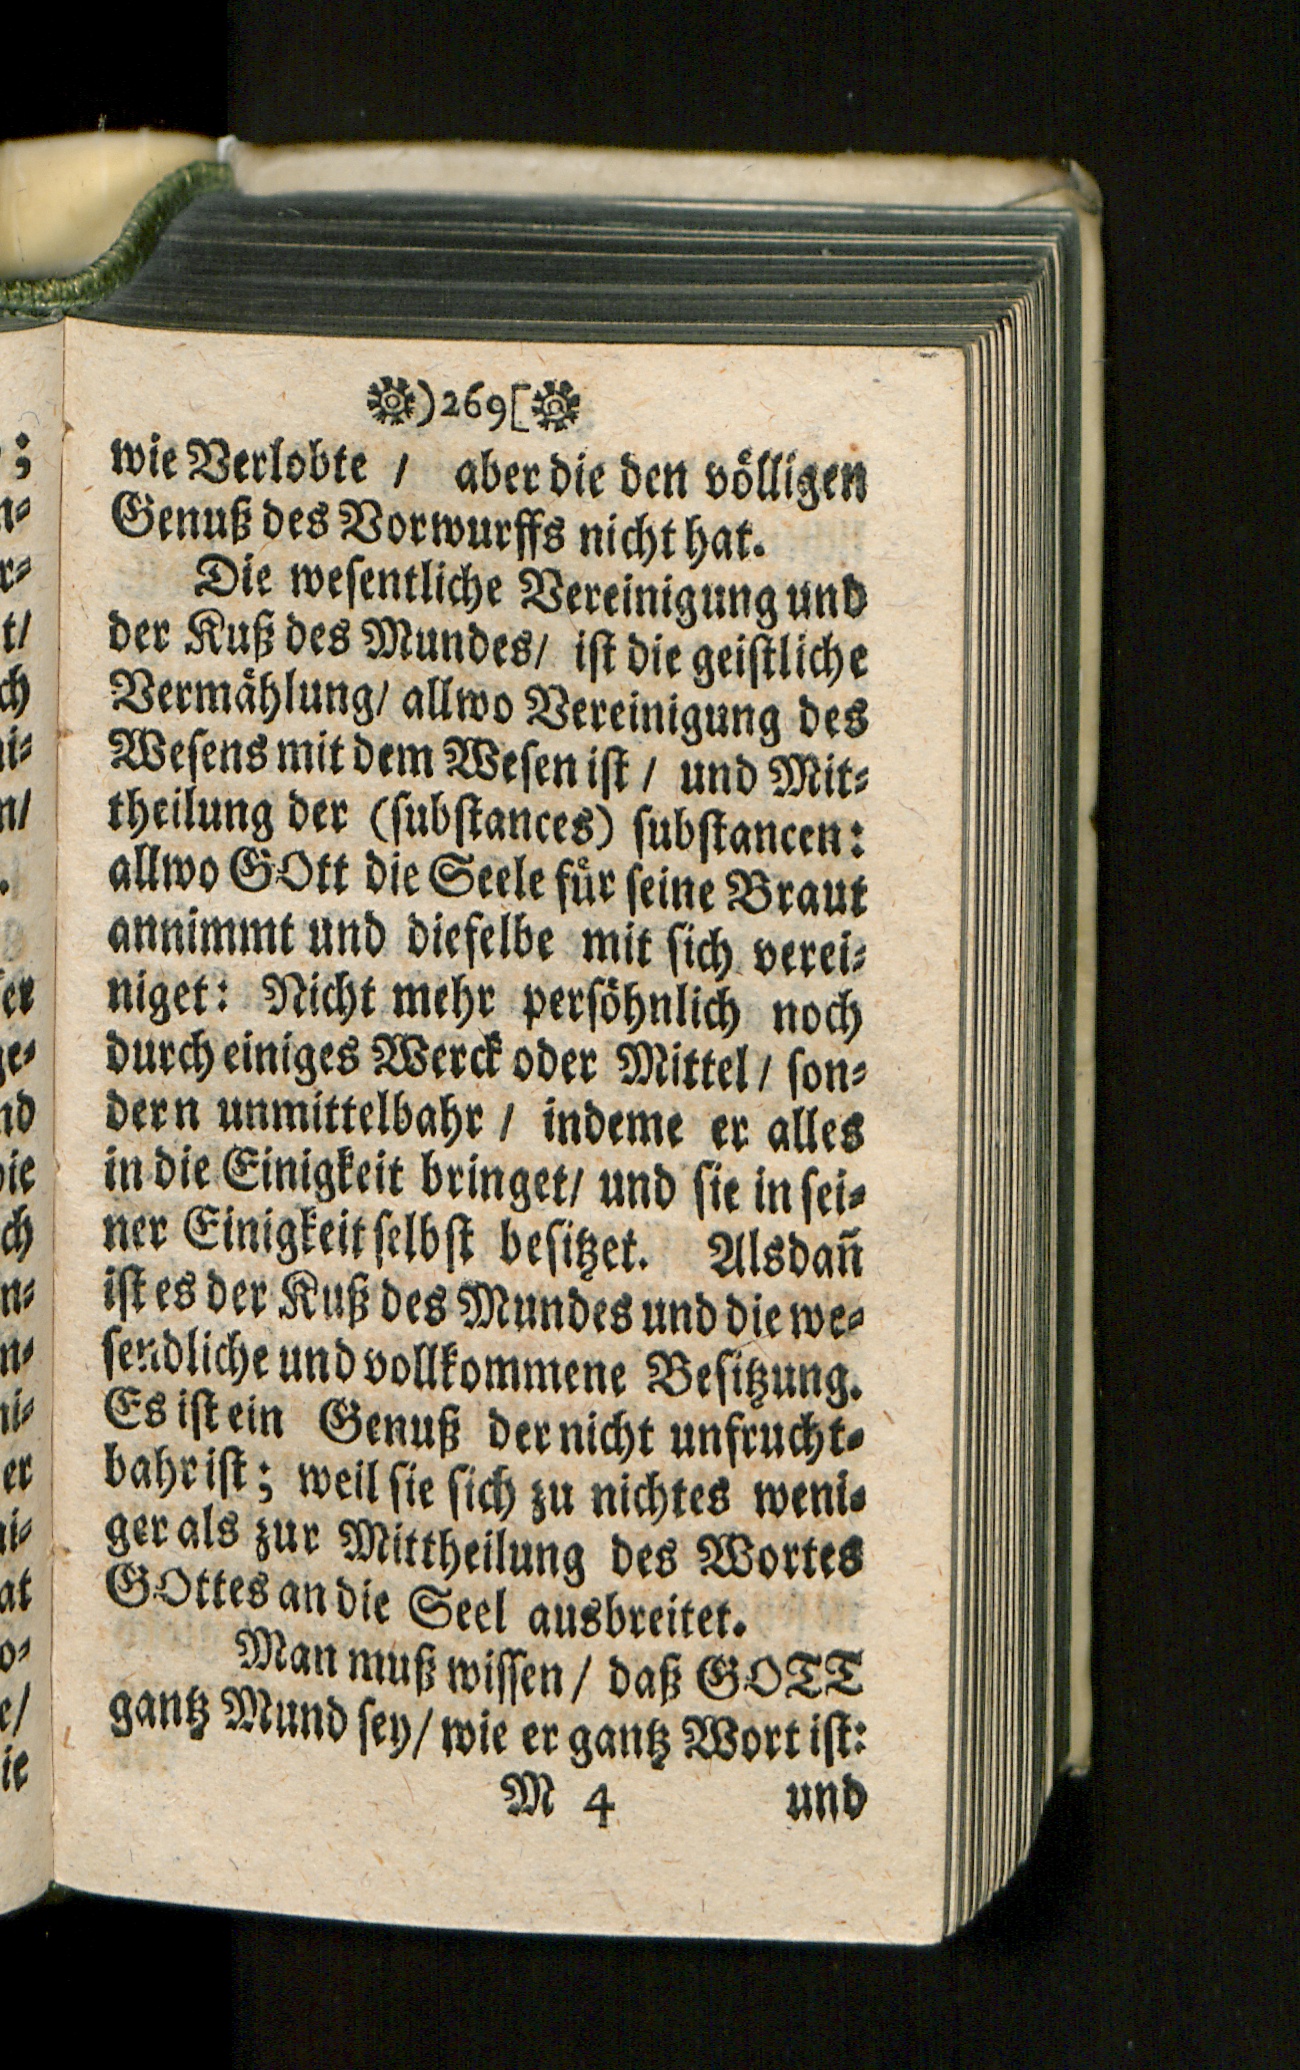 )269[
wie Verlobte / aber die den völligen
Genuß des Vorwurffs nicht hat.
Die weſentliche Vereinigung und
der Kuß des Mundes/ iſt die geiſtliche
Vermählung/ allwo Vereinigung des
Weſens mit dem Weſen iſt / und Mit-
theilung der (ſubſtances) ſubſtancen:
allwo GOtt die Seele für ſeine Braut
annimmt und dieſelbe mit ſich verei-
niget: Nicht mehr perſöhnlich noch
durch einiges Werck oder Mittel / ſon-
dern unmittelbahr / indeme er alles
in die Einigkeit bringet/ und ſie in ſei-
ner Einigkeit ſelbſt beſitzet. Alsdañ
iſt es der Kuß des Mundes und die we-
ſendliche und vollkommene Beſitzung.
Es iſt ein Genuß der nicht unfrucht-
bahr iſt; weil ſie ſich zu nichtes weni-
ger als zur Mittheilung des Wortes
GOttes an die Seel ausbreitet.
Man muß wiſſen / daß GOTT
gantz Mund ſey/ wie er gantz Wort iſt:
M 4 und